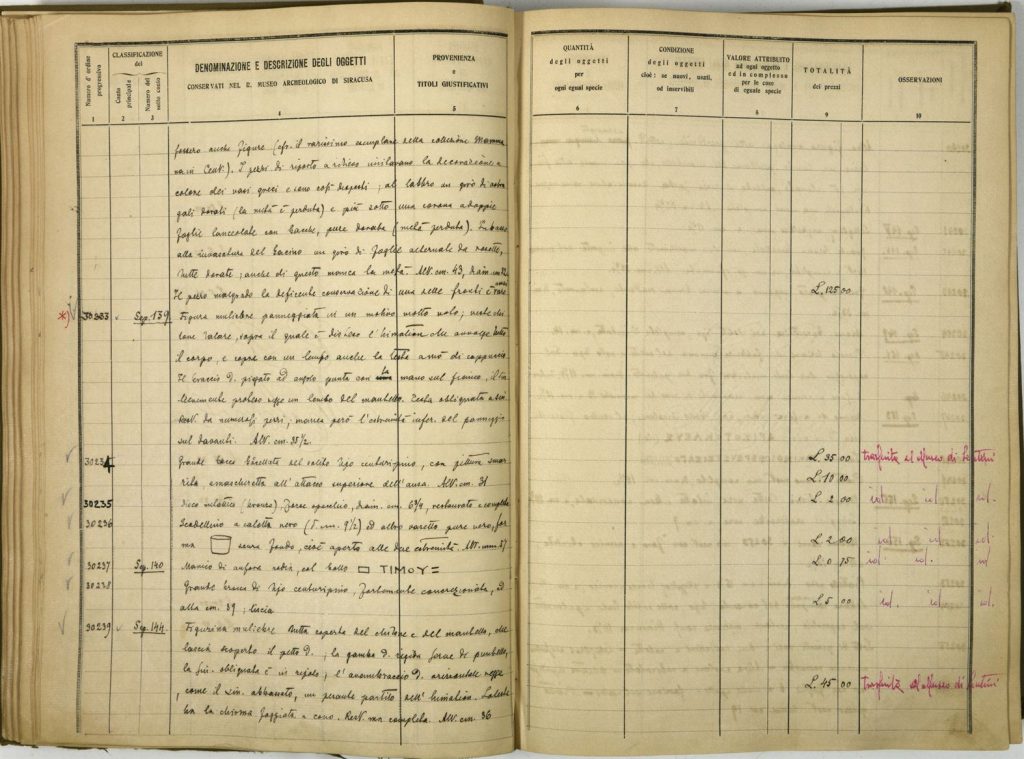 Numero d'ordine progressivo
CLASSIFICAZIONE del
Conto principale
Numero del sotto conto
DENOMINAZIONE E DESCRIZIONE DEGLI OGGETTI
CONSERVATI NEL R. MUSEO ARCHEOLOGICO DI SIRACUSA
PROVENIENZA
e
TITOLI GIUSTIFICATIVI
QUANTITÀ
degli oggetti
per
ogni egual specie
CONDIZIONE
degli oggetti
cioè: se nuovi, usati,
od inservibili
VALORE ATTRIBUITO
ad ogni oggetto
od in complesso
per le cose
di eguale specie
TOTALITÀ
dei prezzi
OSSERVAZIONI
1 2 3 4 5 6 7 8 9 10
fossero anche figure (cfr. il rarissimo esemplare della collezione
Cent.). I pezzi di riporto a rilievo la decorazione a
colore dei vasi greci e sono così disposti; al labbro un giro di
dorati (la metà è perduta) e più sotto una corona a doppie
foglie lanceolate con bacche, pure dorata (metà perduta).
alla del bacino un giro di foglie alternate da rosette,
tutte dorate; anche di questo manca la metà. Alt. cm. 43, diam. cm.
Il pezzo malgrado la deficente conservazione di una delle fronti è L. 125 00
*) 30233 Sep. 139 Figura muliebre panneggiata in un motivo molto noto; veste di
talare, sopra il quale è disteso l'himation che avvolge tutto
il corpo, e copre con un lembo anche la testa a mò di cappuccio.
Il braccio d. piegato ad angolo punta con la mano sul fianco, il
proteso regge un lembo del mantello. Testa obliquata a
Rest. da numerosi pezzi; manca però l'estremità infer. del panneggio
sul davanti. Alt. cm. 35 1/2. L. 35 00 trasferita al Museo di Lentini
30234 Grande del solito tipo centuripino, con pittura
e mascheretta all'attacco superiore dell'ansa. Alt. cm. 31 L. 10 00
30235 Disco metallico (bronzo), forse specchio, diam. cm. 6 3/4, restaurato e completo L. 2 00 id. id. id.
30236 Scodellino a calotta nero (d. cm. 9 1/2) ed altro vasetto pure nero,
ma senza fondo, cioè aperto alle due estremità. Alt. mm. 57 L. 2 00 id. id. id.
30237 Sep. 140 Manico di anfora rodia, col bollo ▭ TIMOY L. 0 75 id. id. id.
30238 Grande di tipo centuripino, fortemente concrezionata, ed
alta cm. 39; L. 5 00 id. id. id.
30239 Sep. 144 Figurina muliebre tutta coperta del chitone e del mantello, che
lascia scoperto il petto d.; la gamba d. rigida,
la sin. obliquata è in riposo; l'avambraccio d. orizzontale regge
, come il sin. abbassato, un partito dell'himation. La testa
ha la chioma foggiata a cono. Rest. ma completa. Alt. cm. 36 L. 45 00 trasferita al Museo di Lentini